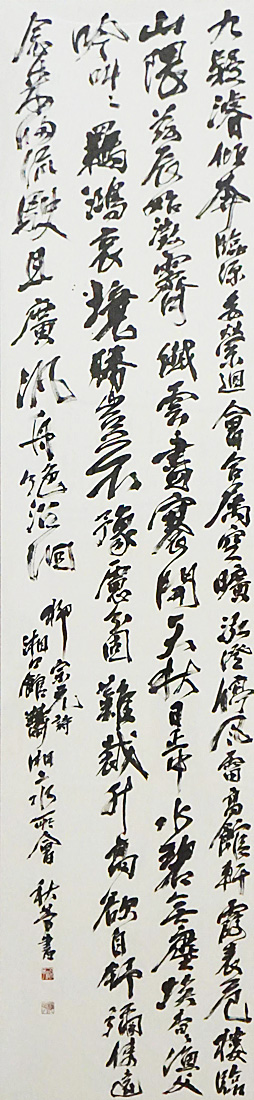 九疑濬傾奔臨源委縈迴會合屬空曠泓澄停風雷高館軒霞表危樓臨
山隈茲辰始澂霽纖雲盡褰開天秋日正中水碧無塵埃杳〻漁父
吟叫〻羈鴻哀境勝豈不豫慮分固難裁升高欲自舒彌使遠
念來歸流駛且廣汎舟絕沿洄
柳宗元詩
湘口館瀟湘二水所會
秋 書